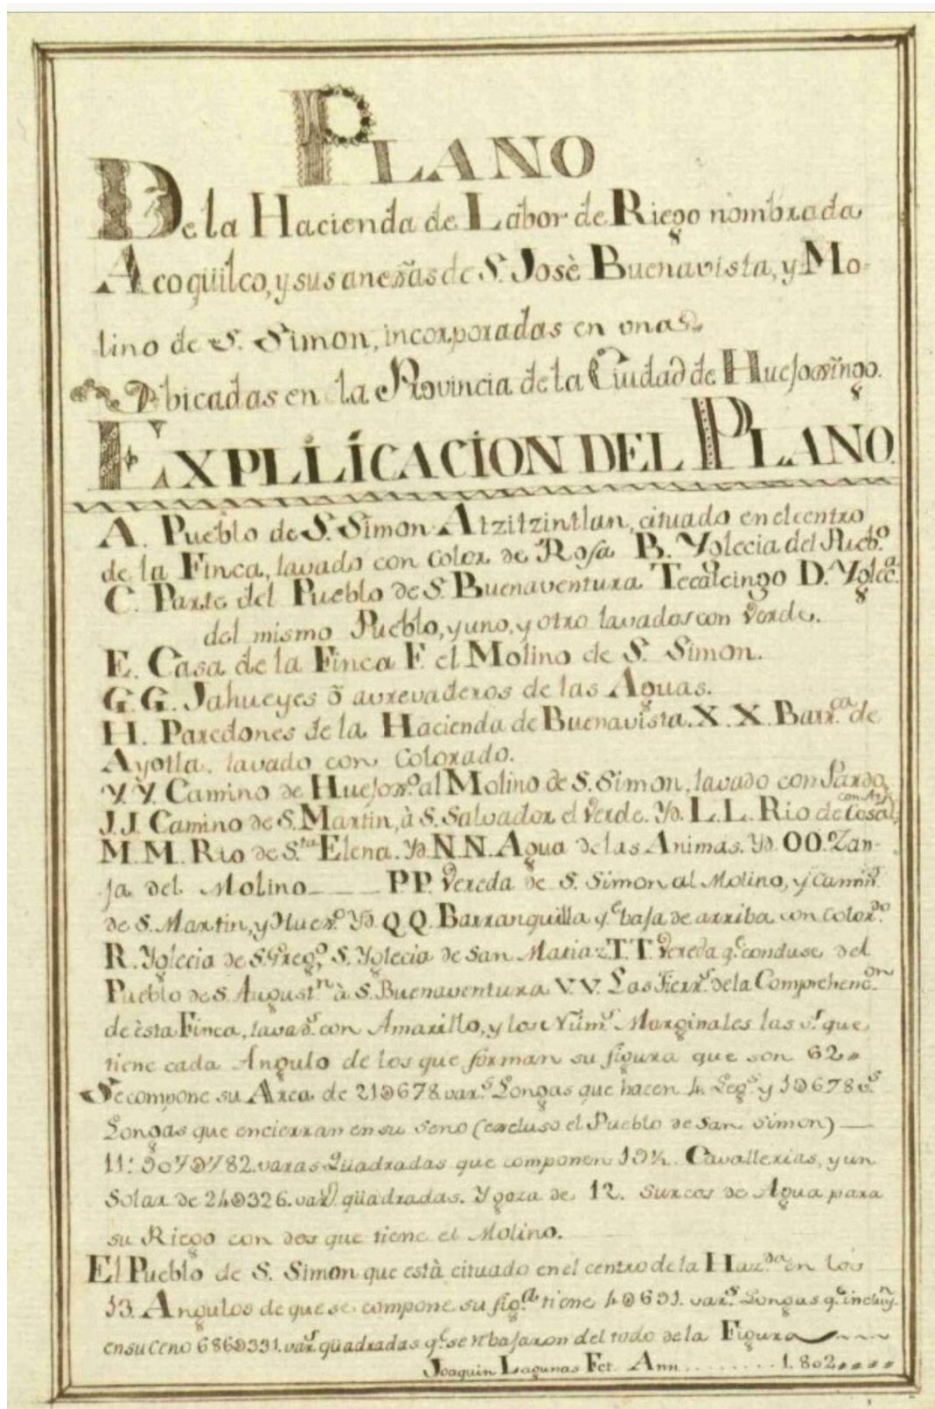 PLANO
De la Hacienda de Labor de Riego nombrada
Acoquilco, y sus anexas de S. Josè Buenavista, y Mo-
lino de S. Simon, incorporadas en una
Vbicadas en la Provincia de la Ciudad de Huejosingo.
EXPLLICACION DEL PLANO.
A. Pueblo de S. Simon Atzitzintlan, cituado en el centro
de la Finca, lavado con color de Rosa B. Yglecia del Pueb.o
C. Parte del Pueblo de S. Buenaventura Tecalcingo D. Yglec.a
del mismo Pueblo, y uno, y otro lavados con Verde.
E. Casa de la Finca F. el Molino de S. Simon.
G. G. Jahueyes ō avrevaderos de las Aguas.
H. Paredones de la Hacienda de Buenavista. X. X. Barr.ca de
Ayotla, lavado con Colorado.
Y. Y. Camino de Huejos.o al Molino de S. Simon, lavado con Pardo
J. J. Camino de S. Martin, à S. Salvador el Verde. Yd. L. L. Rio de
M. M. Rio de S.ta Elena. Yd. N. N. Agua de las Animas. Yd. OO. Zan-
ja del Molino PP. Vereda de S. Simon al Molino, y Camin.o
de S. Martin, y Huex.o Yd. QQ. Barranquilla q.e baja de arriba con color.do
R. Yglecia de S. Greg.o S. Yglecia de San Matias T. T. Vereda q.e conduse del
Pueblo de S. August.n à S. Buenaventura V. V. Las Tierr.s de la Comprehenc.on
de èsta Finca, lavad.s con Amarillo, y los Num.s Marginales las v.s que
tiene cada Angulo de los que forman su figura que son 62
Se compone su Area de 21@678 var.s Longas que hacen 4 Leg.s y 1@678 v.s
Longas que encierran en su Seno (excluso el Pueblo de San Simon)
varas Quadradas que componen 19½ Cavallerias, y un
Solar de 24@326. var.s qüadradas. Y goza de 12. Surcos de Agua para
su Riego con dos que tiene el Molino.
El Pueblo de S. Simon que està cituado en el centro de la Haz.da en los
13. Angulos de que se compone su fig.a tiene 4@631. var.s Longas q.e incluy.n
en su Ceno 686@331. var.s qüadradas q.e se rebajaron del todo de la Figura
Joaquin Lagunas Fct. Ann. 1.802